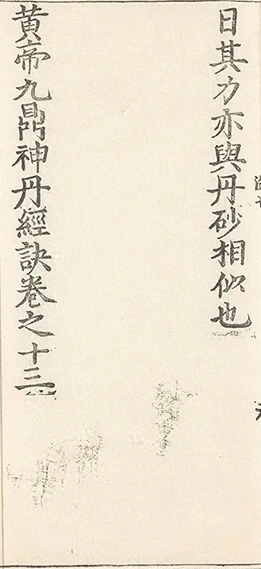 日其力亦與丹砂相似也
黄帝九鼎神丹經訣卷之十三